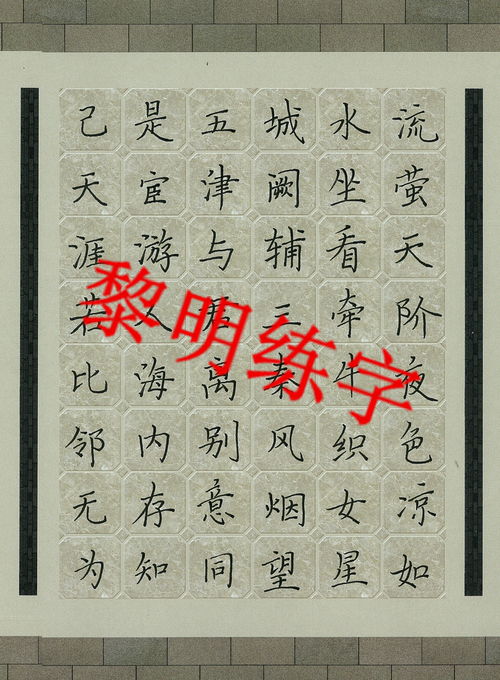 流萤天阶夜色凉如
水坐看牵牛织女星
城阙辅三秦风烟望
五津与君离别意同
是宦游人海内存知
己天涯若比邻无为
黎明练字